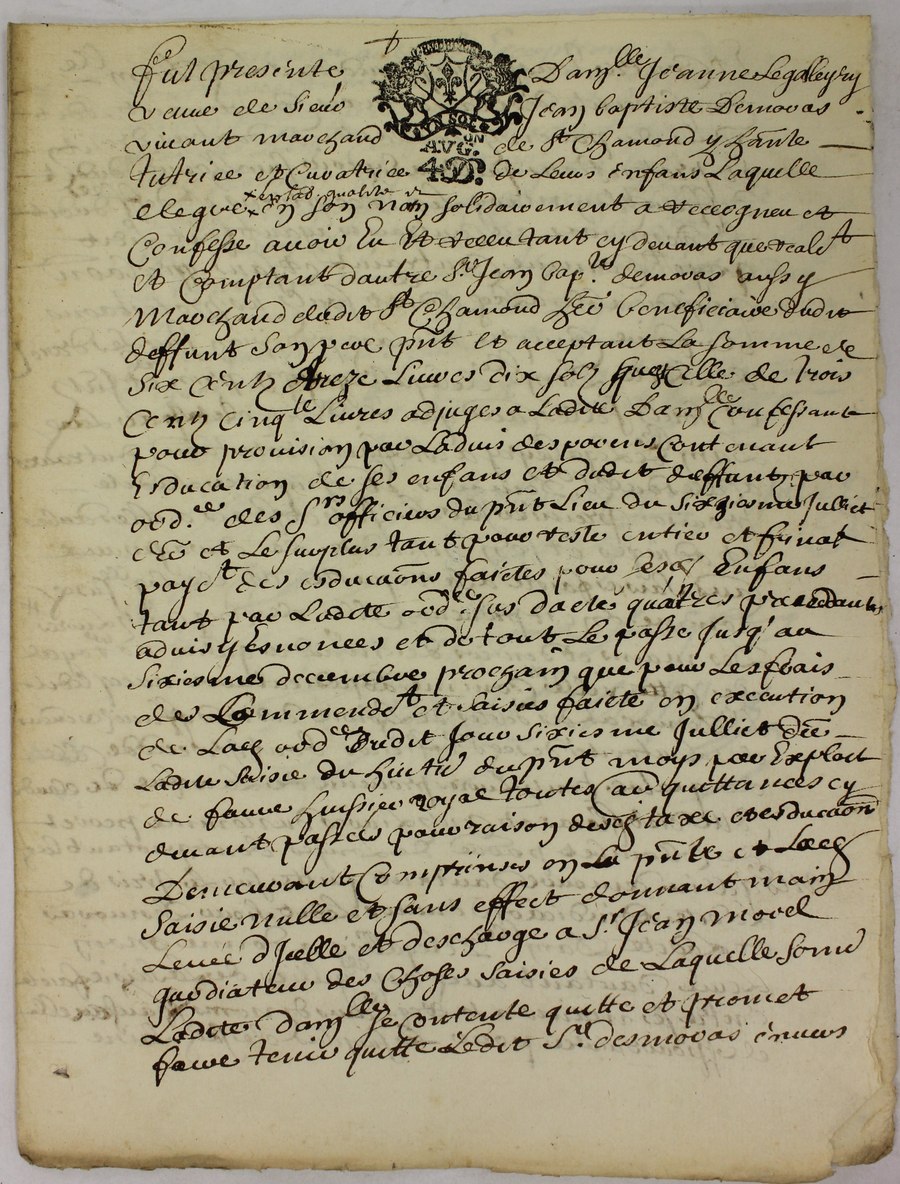 fut presente Dam.lle Jeanne Legalleyry
veuve de sieur Jean baptiste Demoras
vivant marchand de St Chamond y habnte
AVG.ON
tutrice et Curatrice de Leurs enfans Laquelle
en lad qualité et
elegue en son nom solidairement a recogneu et
Confesse avoir Eu Et receu tant cy devant que realt
et Comptant dautre Sr Jean bap.te demoras aussy
Marchand dudit St Chamond her beneficiaire dudit
deffunt Son pere pnt et acceptant La somme de
Six Centz Livres dix solz celle de trois
Centz Cinq.te Livres adjuges a Ladite Dam.lle Confessante
pour provision par Ladvis des parens Contenant
Esducation de ses enfans et dudit deffunt par
ord.ce des Srs officiers du pnt Lieu du sixziesme Julliet
et Le surplus tant pour reste entier et finnal
payt des esducaons faictes pour Enfans
tant par Ladite ord.ce sus datée quatres precedants
advis y esnonces et de tout Le passe Jusq'au
Sixiesme decembre prochain que pour Les frais
des Commendt et saisies faicte en execution
de Lad ord.ce Dudit Jour sixiesme Julliet
Ladite saisie du huite du pnt moys par Exploit
de faure huissier royal toutes quittances cy
devant passees pour raison desd taxe et esducaon
Demeurant Comprinses en La pnte et Lad
Saisie nulle et sans effect donnant main
Levée d'Icelle et descharge a Sr Jean morel
gardiateur des Choses saisies de Laquelle some
Ladite dam.lle se Contente quitte et promet
faire tenir quitte Ledit Sr desmoras envers